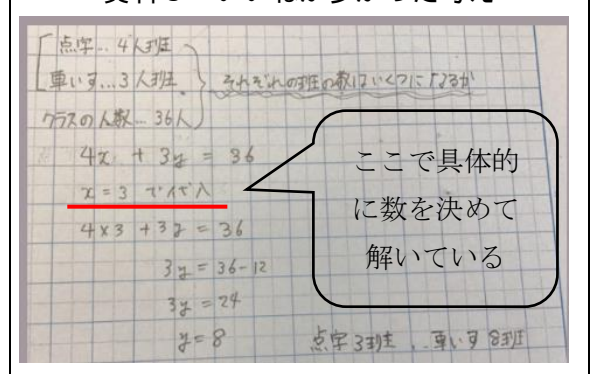 点字…4人班
車いす…3人班
クラスの人数…36人
それぞれの班の数はいくつになるか
4x + 3y = 36
x = 3 で代入
4×3 + 3y = 36
3y = 36-12
3y = 24
y = 8
点字3班 車いす8班
ここで具体的
に数を決めて
解いている